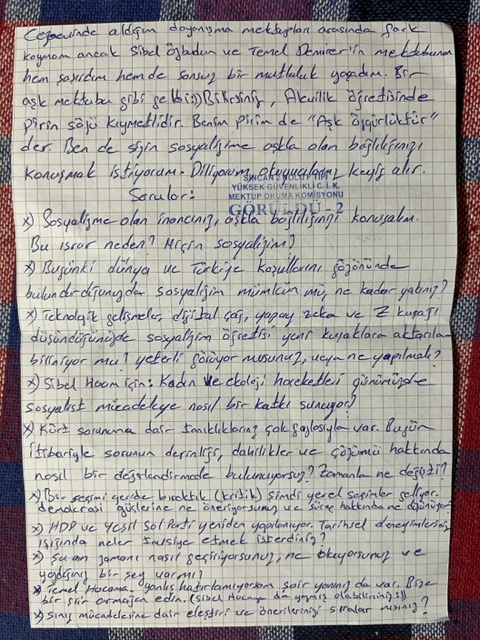 Cezaevinde aldığım dayanışma mektupları arasında fark
koymam ancak Sibel Özbudun ve Temel Demirer'in mektubuna
hem şaşırdım hem de sonsuz bir mutluluk yaşadım. Bir
aşk mektubu gibi geldi:)) Bilirsiniz, Alevilik öğretisinde
pirin sözü kıymetlidir. Benim pirim de "Aşk özgürlüktür"
der. Ben de sizin sosyalizme aşkla olan bağlılığınızı
konuşmak istiyorum. Diliyorum okuyucuların keyis alır.
SİNCAN 2 NOLU F TİPİ
YÜKSEK GÜVENLİKLİ C.İ.K.
MEKTUP OKUMA KOMİSYONU
GÖRÜLDÜ-2
Sorular:
x) Sosyalizme olan inancınız, aşkla bağlılığınızı konuşalım.
Bu ısrar neden? Niçin sosyalizm?
x) Bugünkü dünya ve Türkiye koşullarını gözönünde
bulundurduğunuzda sosyalizm mümkün mü, ne kadar yakınız?
x) Teknolojik gelişmeler, dijital çağ, yapay zeka ve Z kuşağı
düşündüğünüzde sosyalizm öğretisi yeni kuşaklara aktarıla
biliniyor mu? Yeterli görüyor musunuz, veya ne yapılmalı?
x) Sibel Hocam için: Kadın ve ekoloji hareketleri günümüzde
sosyalist mücadeleye nasıl bir katkı sunuyor?
x) Kürt sorununa dair tanıklıklarınız çok fazlasıyla var. Bugün
itibariyle sorunun derinliği, dahilikler ve çözümü hakkında
nasıl bir değerlendirmede bulunuyorsunuz? Zamanla ne değişti?
x) Bir seçimi geride bıraktık (kritik) şimdi yerel seçimler geliyor.
demokrasi güçlerine ne öneriyorsunuz ve süreç hakkında ne düşünüyorsunuz
x) HDP ve Yeşil Sol Parti yeniden yapılanıyor. Tarihsel deneyimleriniz
ışığında neler tavsiye etmek isterdiniz?
x) Şu an zamanı nasıl geçiriyorsunuz, ne okuyorsunuz ve
yazdığınız bir şey var mı?
x) Temel Hocama: yanlış hatırlamıyorsam şair yönünüz da var. Bize
bir şiir armağan edin. (Sibel Hocam da yazmış olabilirsiniz:))
x) Sınıf mücadelesine dair eleştiri ve önerilerinizi sıralar mısınız?